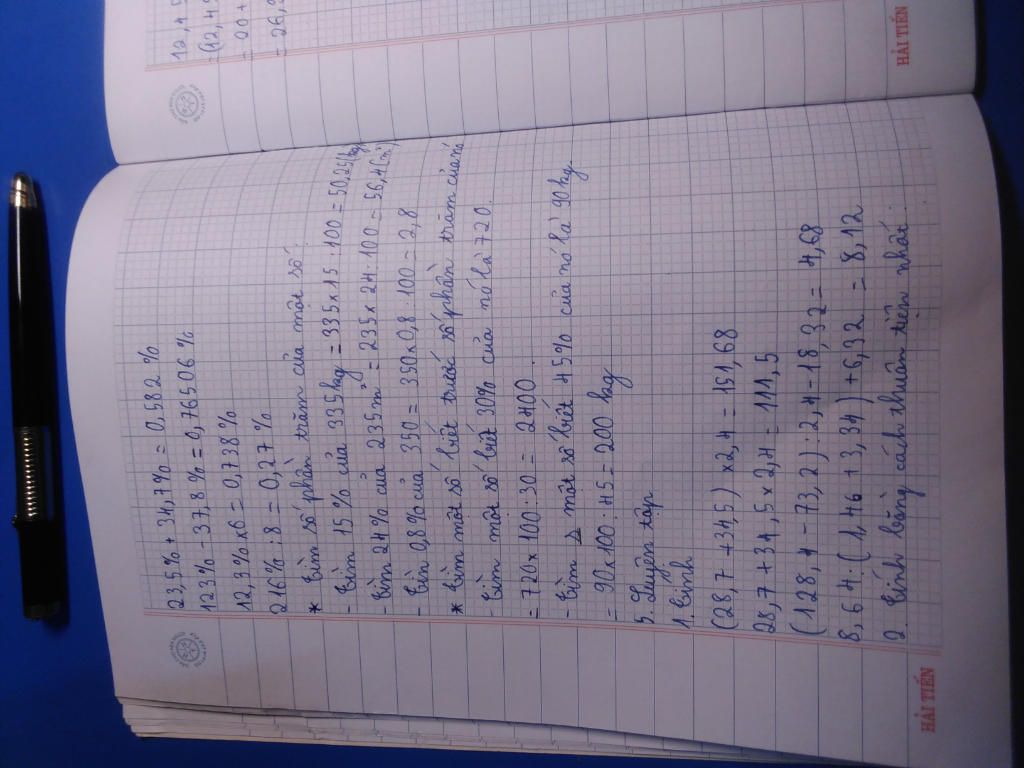 23,5% + 34,7% = 0,582 %
123% - 37,8% = 0,76506 %
12,3% x 6 = 0,738 %
216% : 8 = 0,27 %
* Tìm số phần trăm của một số:
- Tìm 15% của 335kg = 335 x 15 : 100 = 50,25 (kg)
- Tìm 24% của 235m² = 235 x 24 : 100 = 56,4 (m²)
- Tìm 0,8% của 350 = 350 x 0,8 : 100 = 2,8
* Tìm một số biết trước số phần trăm của nó
- Tìm một số biết 30% của nó là 720.
= 720 x 100 : 30 = 2400.
- Tìm một số biết 45% của nó là 90 kg.
= 90 x 100 : 45 = 200 kg
5. Luyện tập
1. Tính
(28,7 + 34,5) x 2,4 = 151,68
28,7 + 34,5 x 2,4 = 111,5
(128,4 - 73,2) : 2,4 - 18,32 = 4,68
8,64 : (1,46 + 3,34) + 6,32 = 8,12
2. Tính bằng cách thuận tiện nhất:
HẢI TIẾN
12,45
(12,45
= 20 +
= 26,
HẢI TIẾN